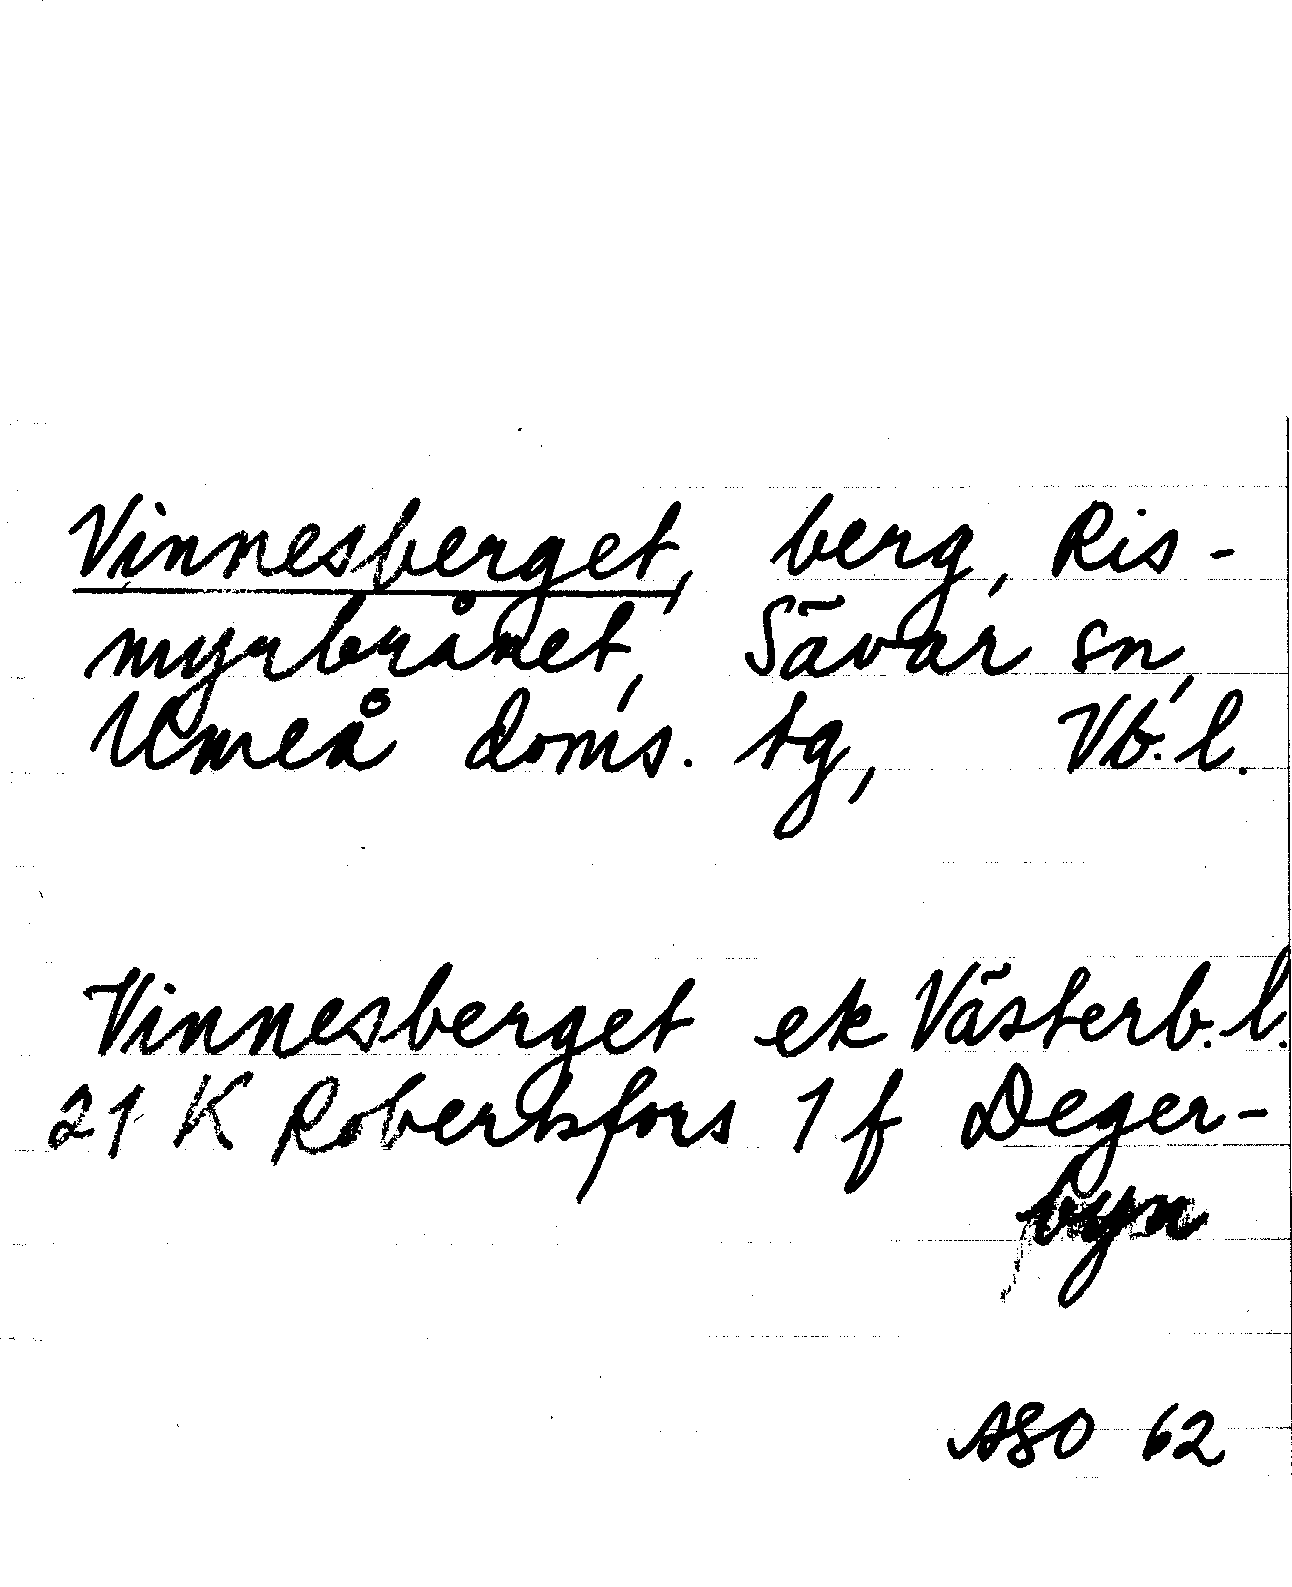 Vinnesberget, berg, Ris-
myrbrånet, Sävar sn,
Umeå doms. tg, Vb. l.
Vinnesberget ek Västerb. l.
21 K Robertsfors 1 f Deger-
byn
ASO 62